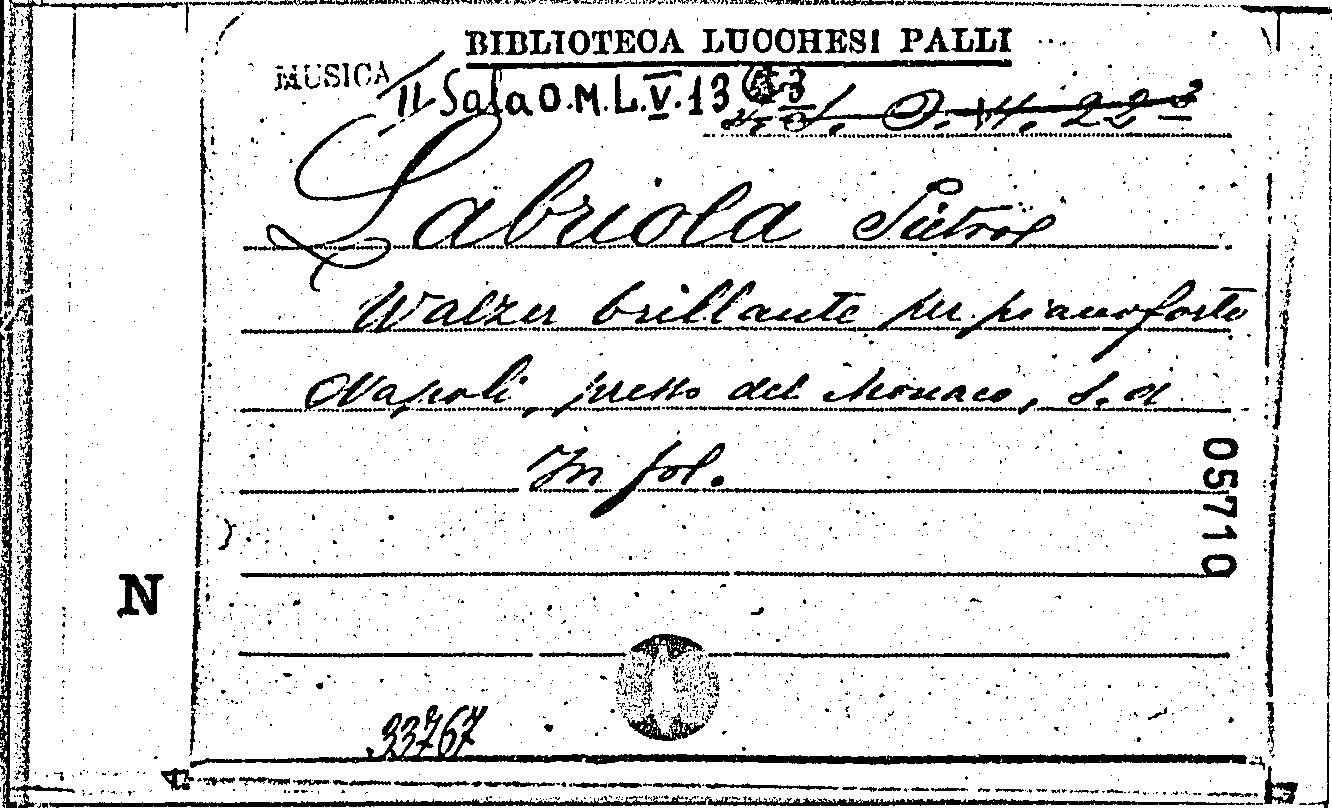 BIBLIOTECA LUCCHESI PALLI
MUSICA
II Sala O.M.L.V.13
O. 22
Labriola Pietro
Walzer brillante per pianoforte
Napoli, presso del Monaco, S. d
In fol.
05710
N
33767